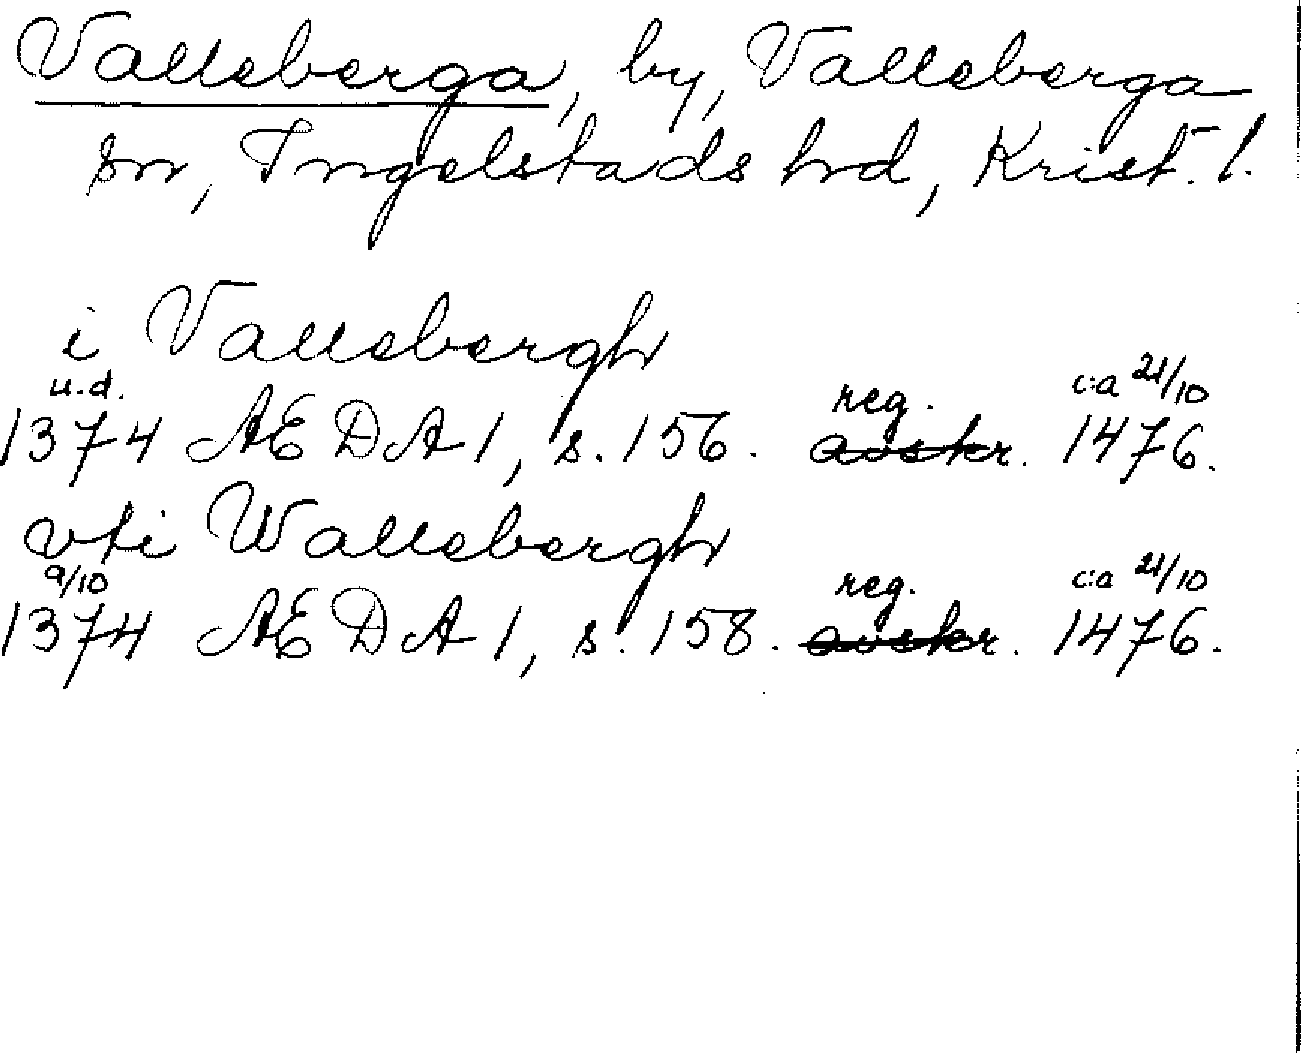 Valleberga, by, Valleberga
sn, Ingelstads hd, Krist. l.
i Vallebergh
u.d. reg. c:a 21/10
1374 ÆDA 1, s. 156. avskr. 1476.
vti Wallebergh
9/10 reg. c:a 21/10
1374 ÆDA 1, s. 158. avskr. 1476.